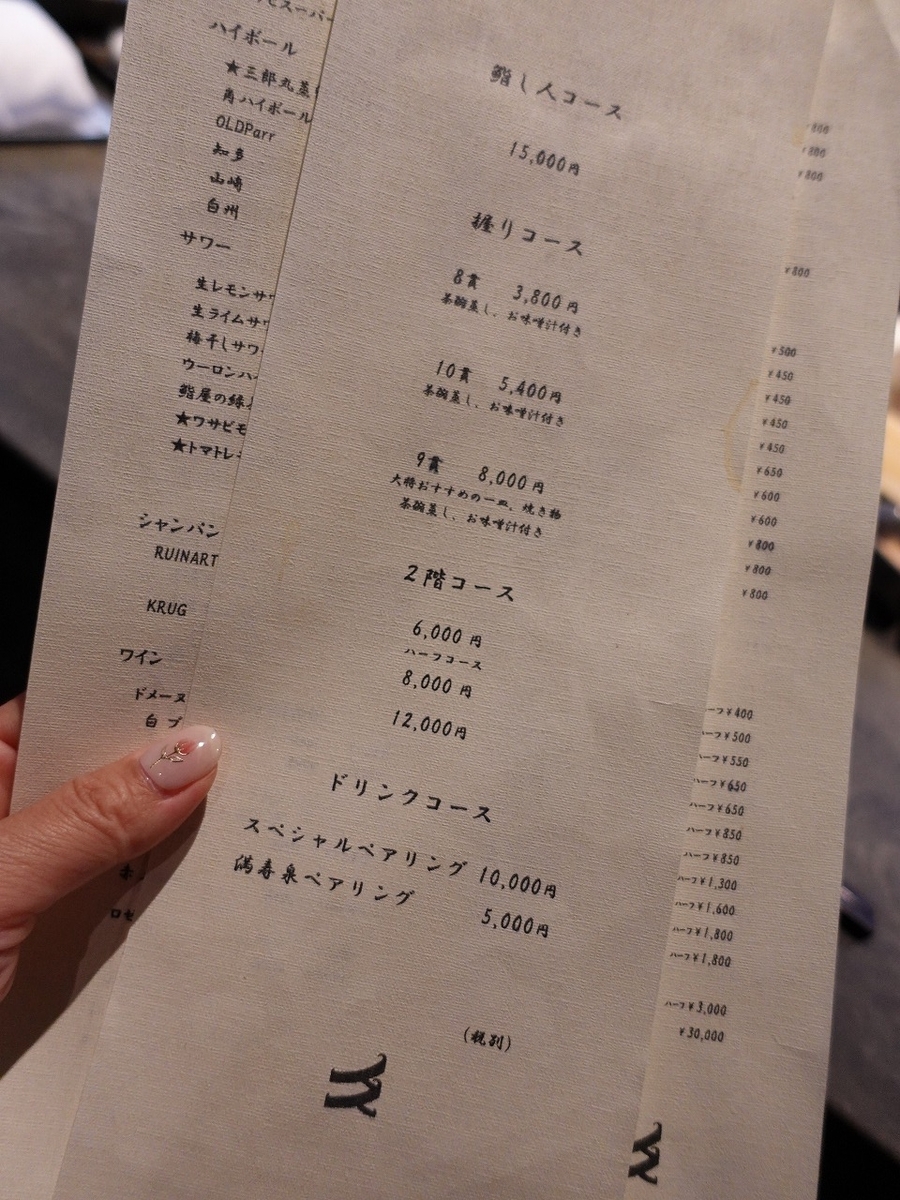 ハイボール
★三郎丸蒸
角ハイボール
OLDParr
知多
山崎
白州
サワー
生レモンサワ
生ライムサワ
梅干しサワ
ウーロンハ
鮨屋の緑
★ワサビモ
★トマトレ
シャンパン
RUINART
KRUG
ワイン
ドメーヌ
白 ブ
ロゼ
鮨し人コース
15,000円
握りコース
8貫 3,800円
茶碗蒸し、お味噌汁付き
10貫 5,400円
茶碗蒸し、お味噌汁付き
9貫 8,000円
大将おすすめの一皿、焼き物
茶碗蒸し、お味噌汁付き
2階コース
6,000円
ハーフコース
8,000円
12,000円
ドリンクコース
スペシャルペアリング 10,000円
満寿泉ペアリング 5,000円
(税別)
¥800
¥800
¥800
¥800
¥500
¥450
¥450
¥450
¥450
¥650
¥600
¥600
¥800
¥800
¥800
ーフ¥400
ーフ¥500
ーフ¥550
ハーフ¥650
ハーフ¥650
ハーフ¥850
ハーフ¥850
ハーフ¥1,300
ハーフ¥1,600
ハーフ¥1,800
ハーフ¥1,800
ハーフ¥3,000
¥30,000